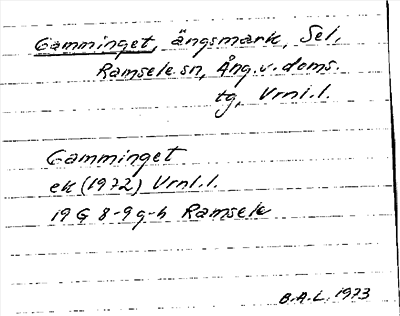 Gamminget, ängsmark, Sel,
Ramsele sn, Ång.v. doms.
tg, Vrnl.l.
Gamminget
ek (1972) Vrnl.l.
19 G 8-9 g-h Ramsele
B.A.L. 1973